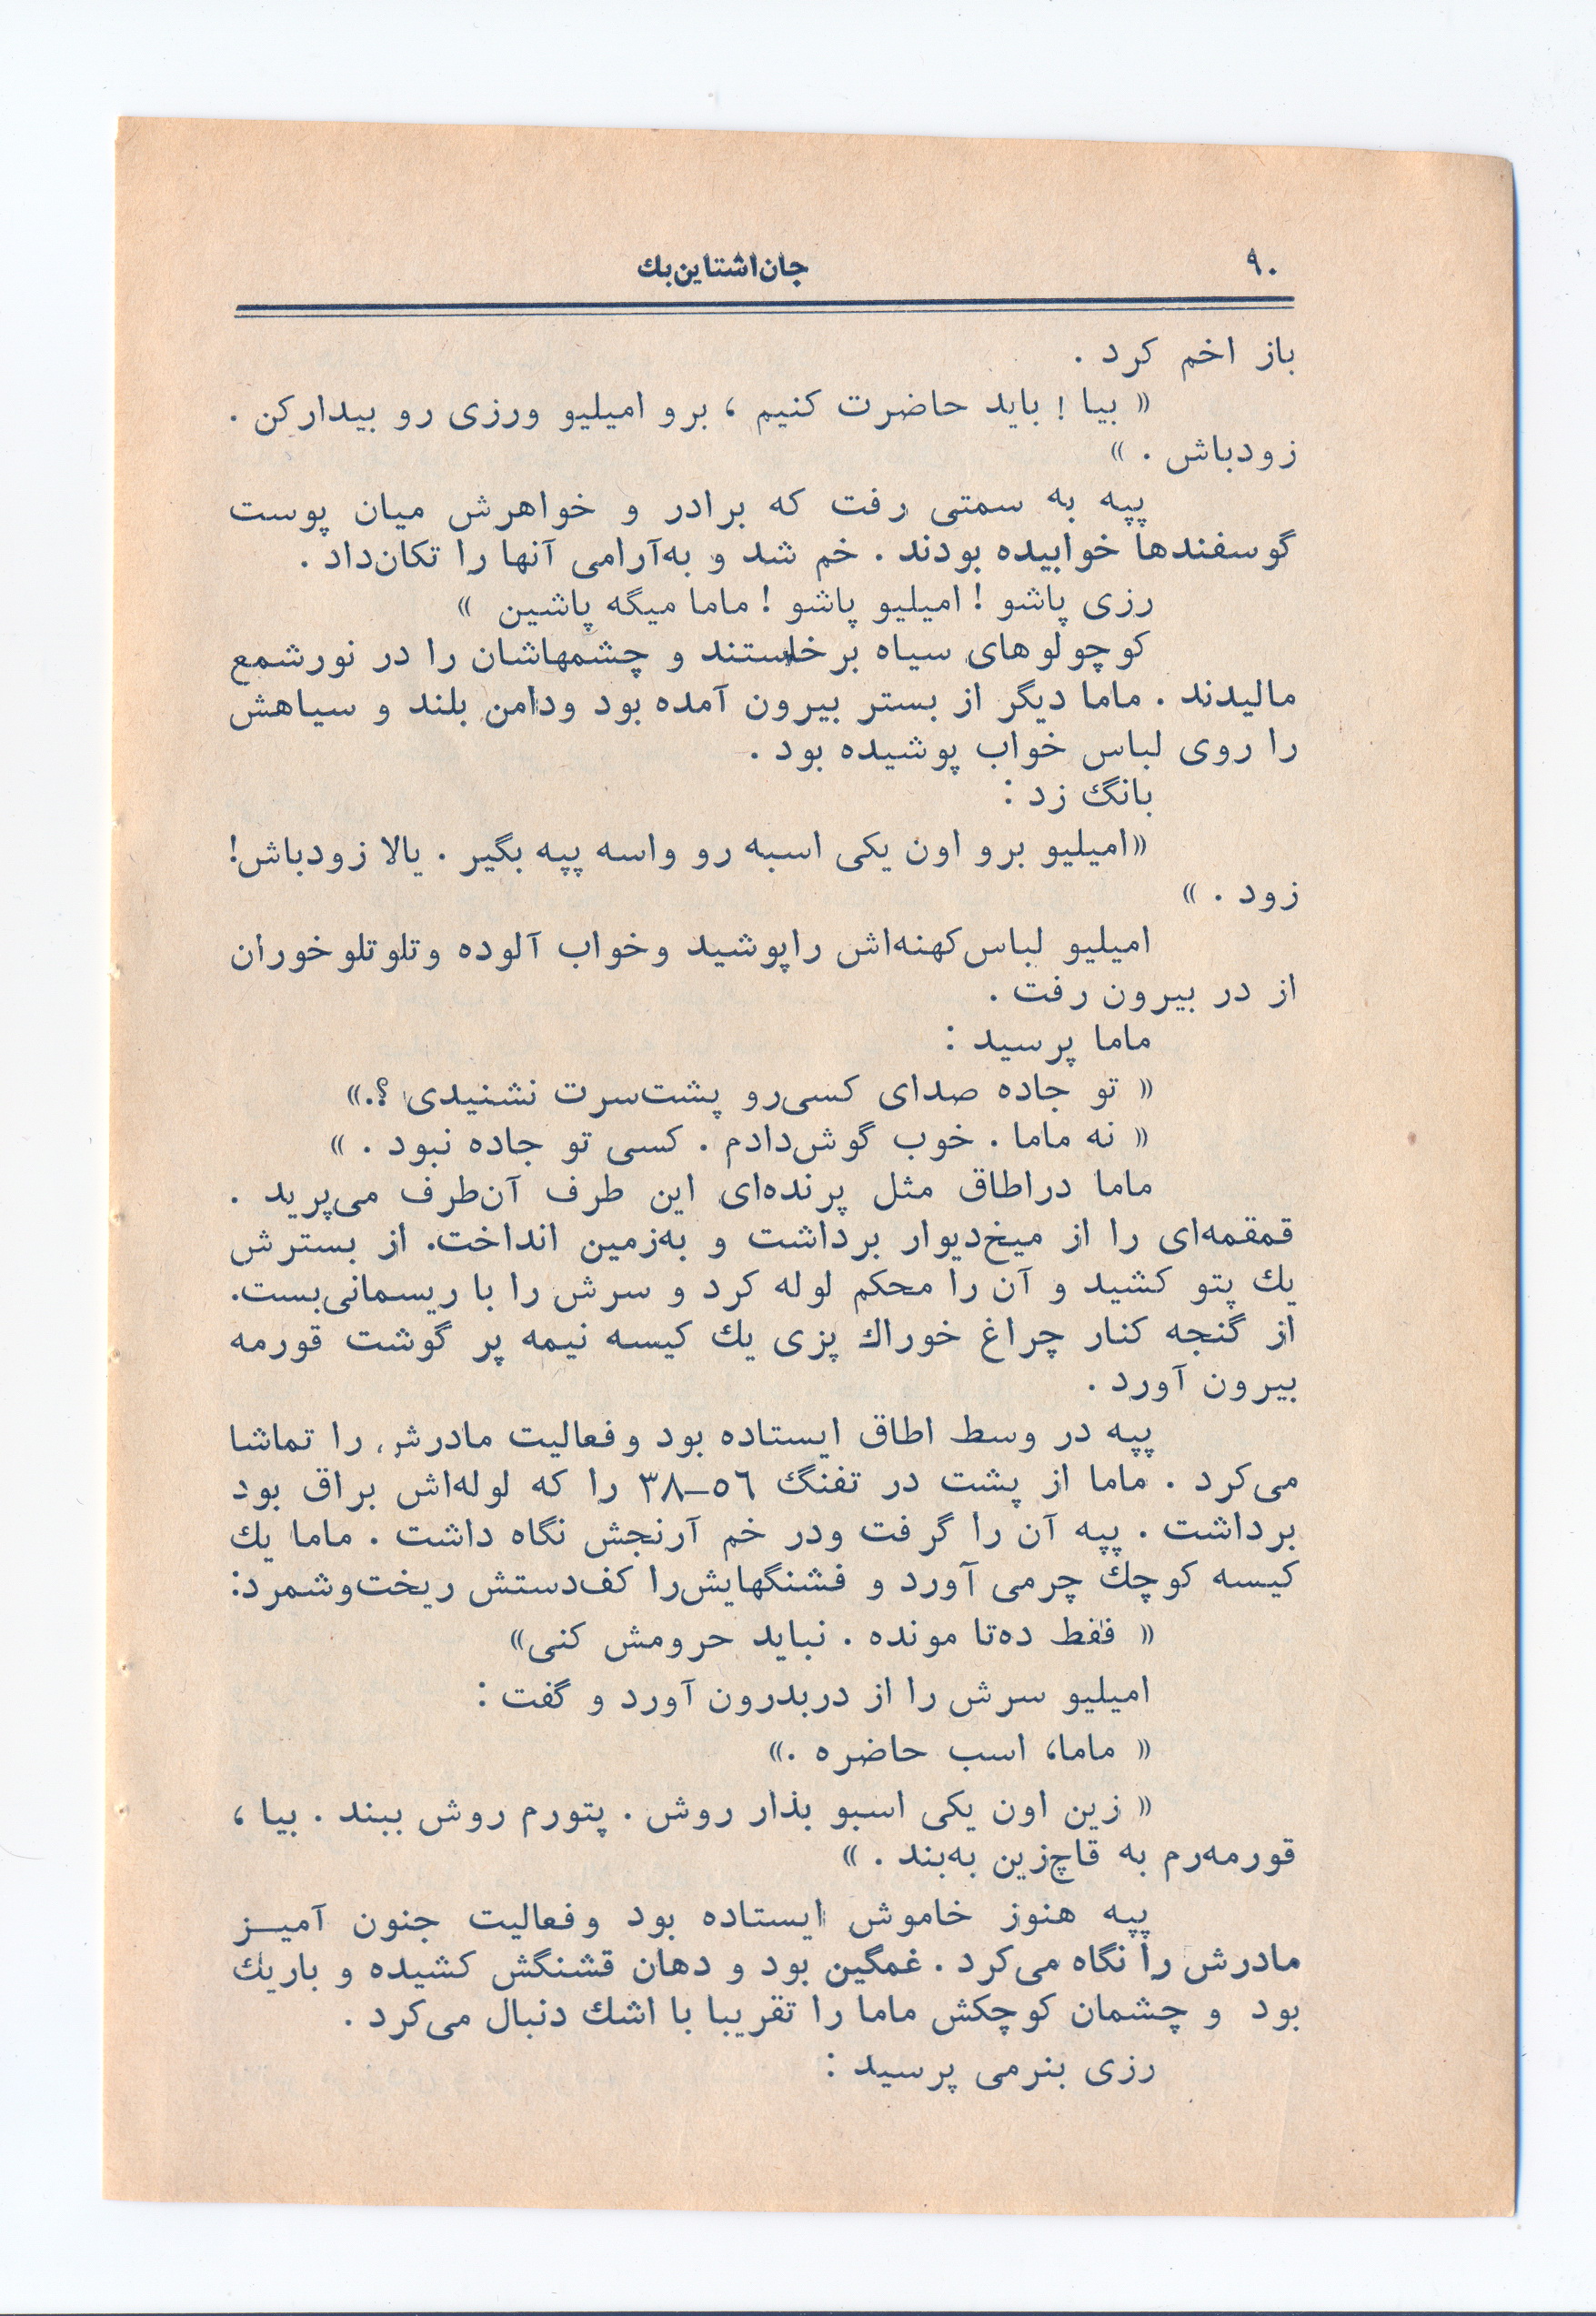 ۹۰
جان‌اشتاین‌بك
باز اخم کرد .
« بیا ! باید حاضرت کنیم ، برو امیلیو ورزی رو بیدارکن .
زودباش . »
پپه به سمتی رفت که برادر و خواهرش میان پوست
گوسفندها خوابیده بودند . خم شد و به‌آرامی آنها را تکان‌داد .
رزی پاشو ! امیلیو پاشو ! ماما میگه پاشین »
کوچولوهای سیاه برخاستند و چشمهاشان را در نورشمع
مالیدند . ماما دیگر از بستر بیرون آمده بود ودامن بلند و سیاهش
را روی لباس خواب پوشیده بود .
بانگ زد :
«امیلیو برو اون یکی اسبه رو واسه پپه بگیر . یالا زودباش!
زود . »
امیلیو لباس‌کهنه‌اش راپوشید وخواب آلوده وتلوتلوخوران
از در بیرون رفت .
ماما پرسید :
« تو جاده صدای کسی‌رو پشت‌سرت نشنیدی ؟.»
« نه ماما . خوب گوش‌دادم . کسی تو جاده نبود . »
ماما دراطاق مثل پرنده‌ای این طرف آن‌طرف می‌پرید .
قمقمه‌ای را از میخ‌دیوار برداشت و به‌زمین انداخت. از بسترش
یك پتو کشید و آن را محکم لوله کرد و سرش را با ریسمانی‌بست.
از گنجه کنار چراغ خوراك پزی یك کیسه نیمه پر گوشت قورمه
بیرون آورد .
پپه در وسط اطاق ایستاده بود وفعالیت مادرش را تماشا
می‌کرد . ماما از پشت در تفنگ ۵۶–۳۸ را که لوله‌اش براق بود
برداشت . پپه آن را گرفت ودر خم آرنجش نگاه داشت . ماما یك
کیسه کوچك چرمی آورد و فشنگهایش‌را کف‌دستش ریخت‌وشمرد:
« فقط ده‌تا مونده . نباید حرومش کنی»
امیلیو سرش را از دربدرون آورد و گفت :
« ماما، اسب حاضره .»
« زین اون یکی اسبو بذار روش . پتورم روش ببند . بیا ،
قورمه‌رم به قاچ‌زین به‌بند . »
پپه هنوز خاموش ایستاده بود وفعالیت جنون آمیــز
مادرش را نگاه می‌کرد . غمگین بود و دهان قشنگش کشیده و باریك
بود و چشمان کوچکش ماما را تقریبا با اشك دنبال می‌کرد .
رزی بنرمی پرسید :